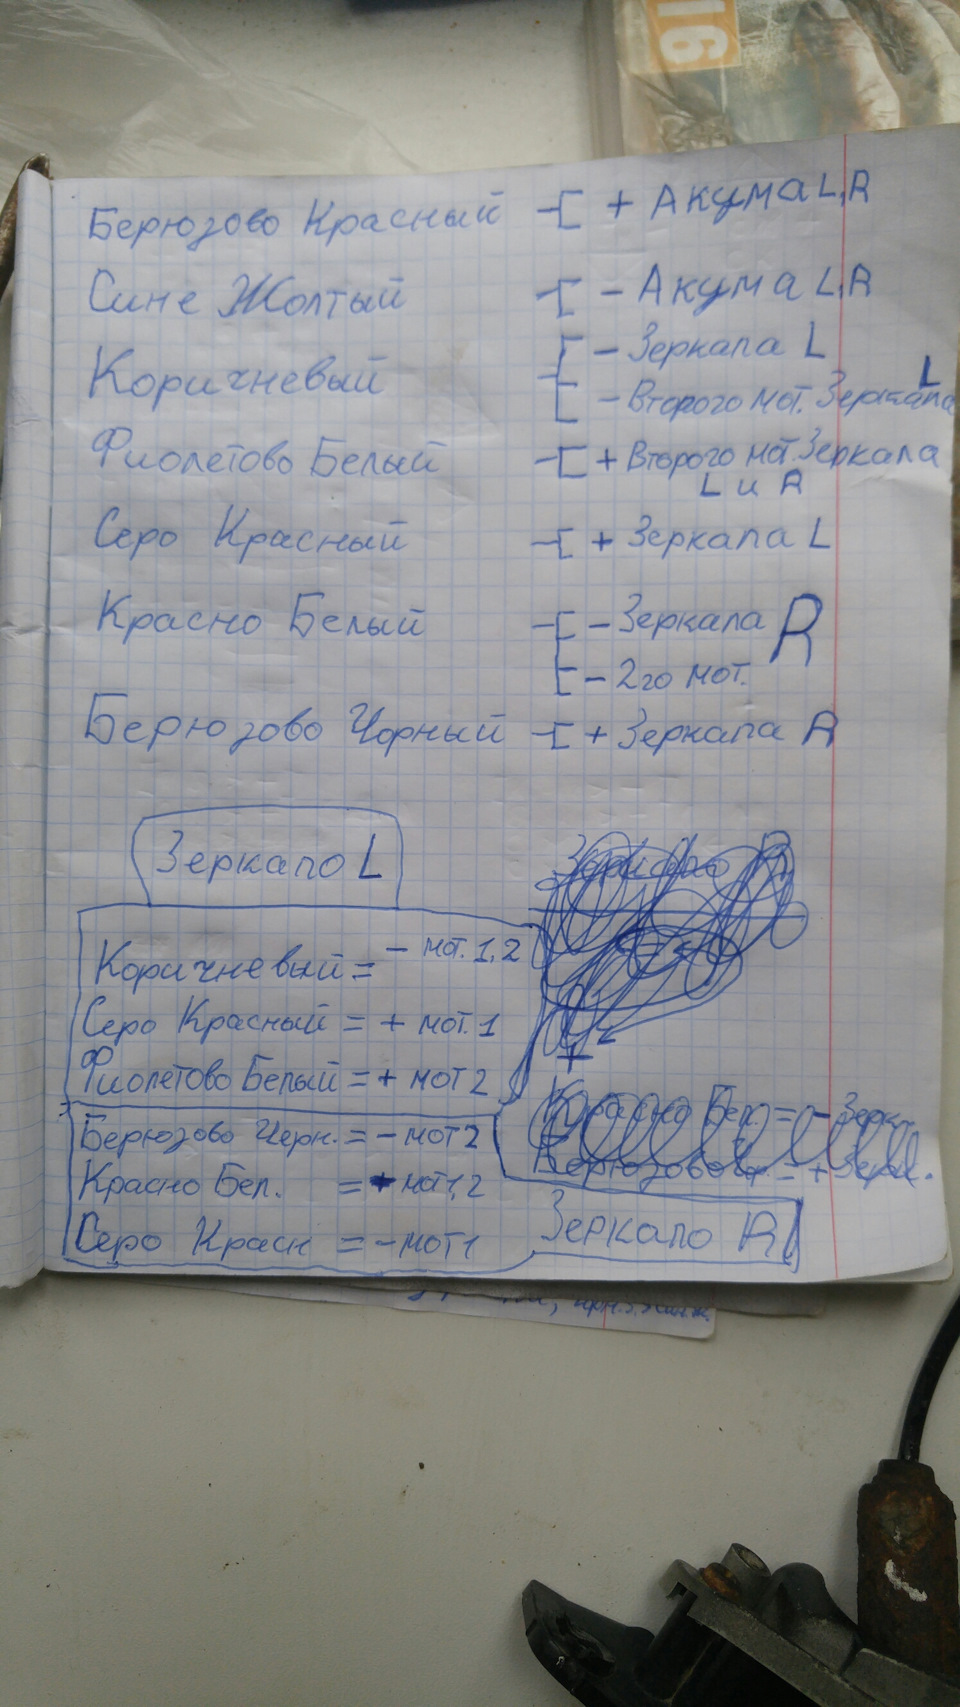 16
Берюзово Красный + Акума L,R
Сине Жолтый - Акума L,R
Коричневый - Зеркала L
- Второго мот. Зеркала L
Фиолетово Белый + Второго мот. Зеркала
L и R
Серо Красный + Зеркала L
Красно Белый - Зеркала R
- 2го мот.
Берюзово Чорный + Зеркала R
Зеркало L
Коричневый = - мот. 1,2
Серо Красный = + мот. 1
Фиолетово Белый = + мот 2
Берюзово Черн. = - мот 2
Красно Бел. = + мот 1,2
Серо Красн = - мот 1
+
Красно Бел. = - Зерк.
= + Зерк.
Зеркало R